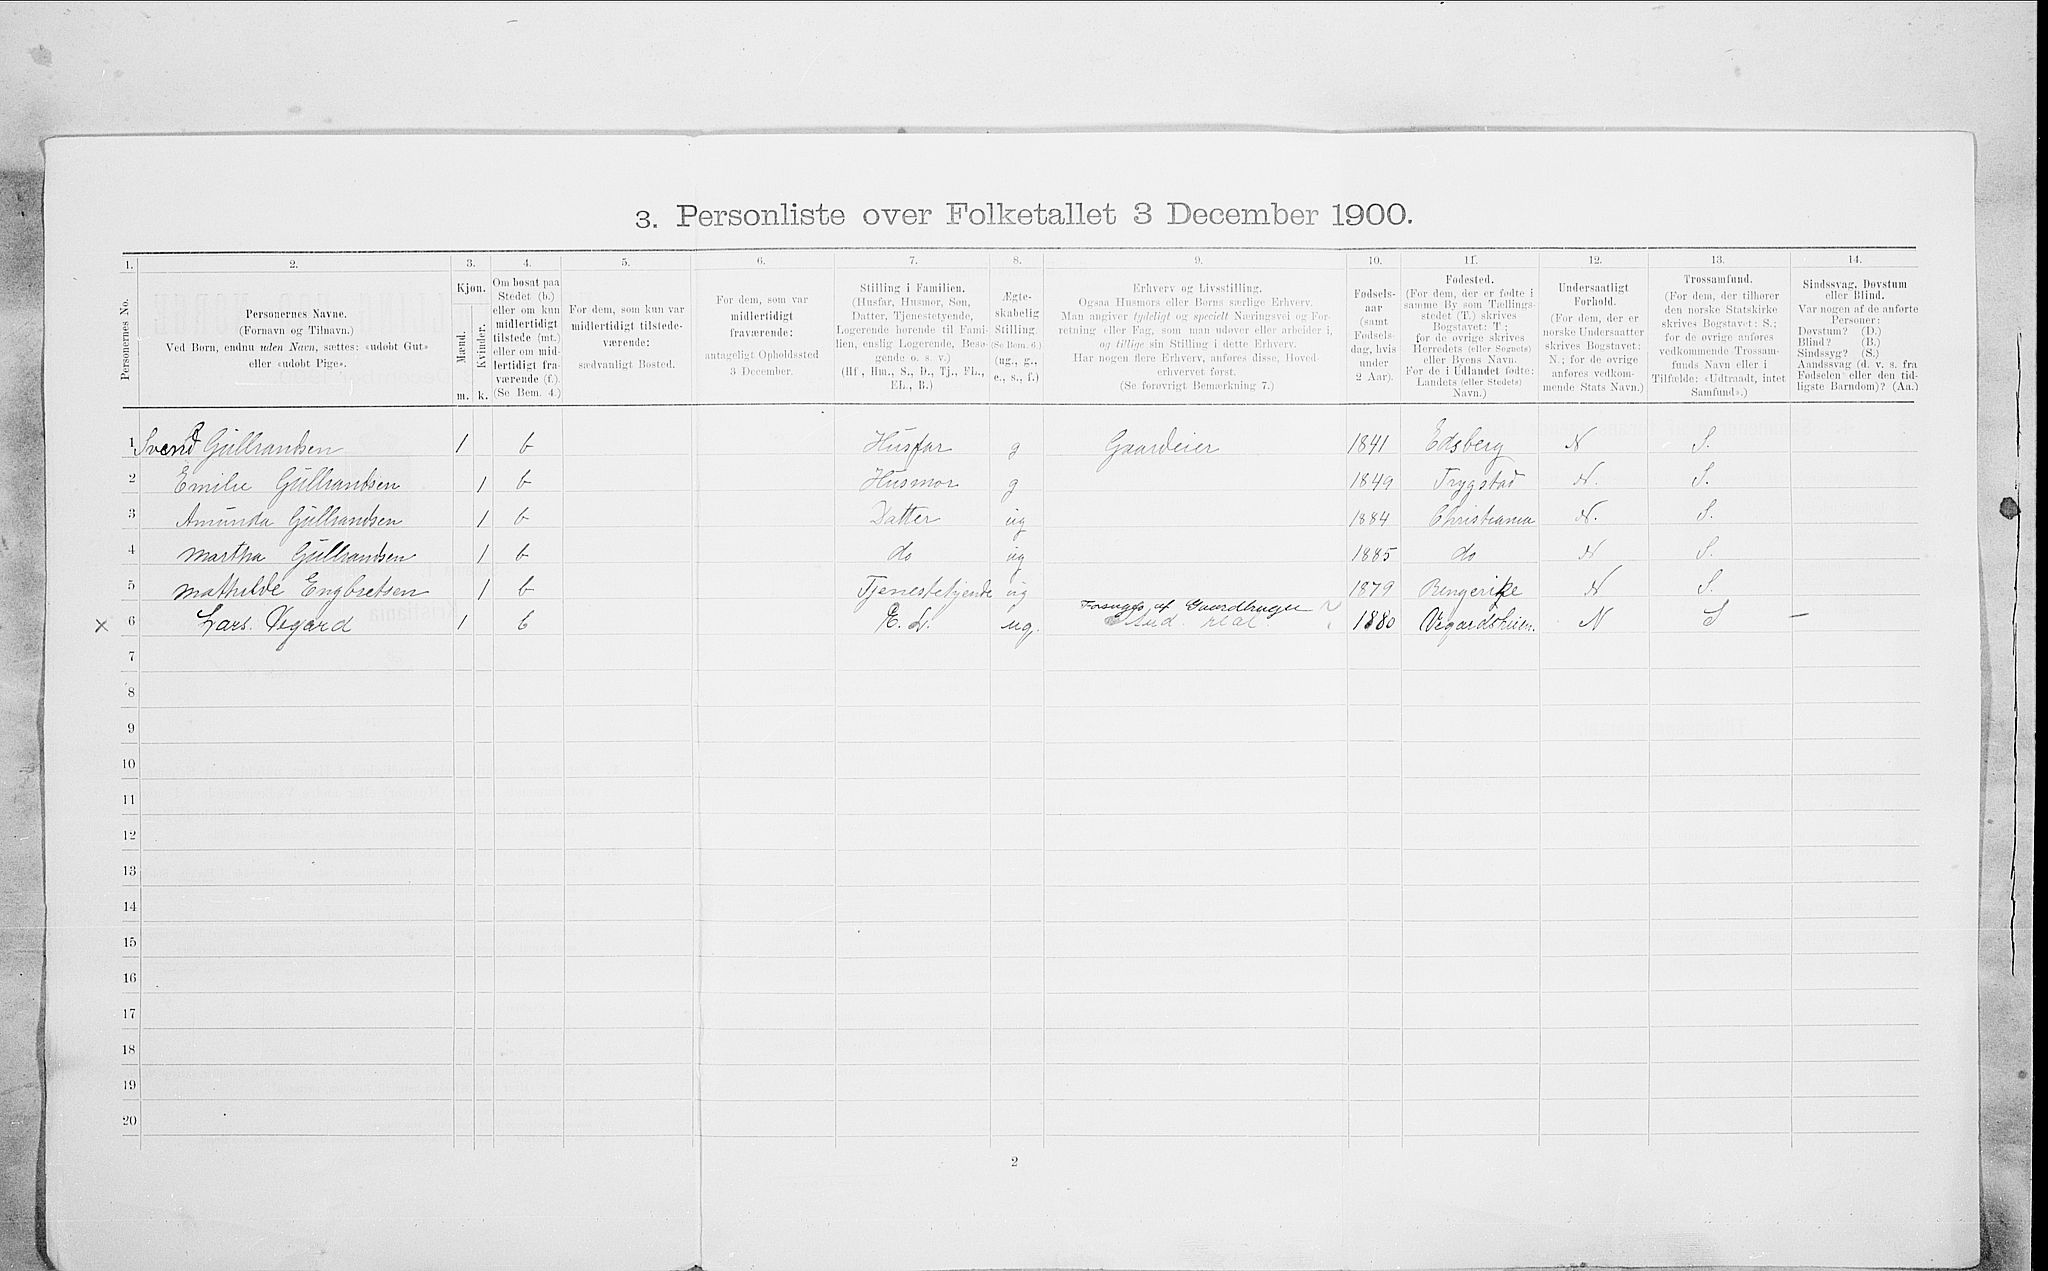 3. Personliste over Folketallet 3 December 1900.
1. 2. 3. 4. 5. 6. 7. 8. 9. 10. 11. 12. 13. 14.
Personernes No.
Personernes Navne.
(Fornavn og Tilnavn.)
Ved Børn, endnu uden Navn, sættes: «udøbt Gut»
eller «udøbt Pige».
Kjøn.
Mænd.
Kvinder.
m. k.
Om bosat paa
Stedet (b.)
eller om kun
midlertidigt
tilstede (mt.)
eller om mid-
lertidigt fra-
værende (f.)
(Se Bem. 4.)
For dem, som kun var
midlertidigt tilstede-
værende:
sædvanligt Bosted.
For dem, som var
midlertidigt
fraværende:
antageligt Opholdssted
3 December.
Stilling i Familien.
(Husfar, Husmor, Søn,
Datter, Tjenestetyende,
Logerende hørende til Fami-
lien, enslig Logerende, Besø-
gende o. s. v.)
(Hf., Hm., S., D., Tj., FL.,
EL., B.)
Ægte-
skabelig
Stilling.
(Se Bem. 6.)
(ug., g.,
e., s., f.)
Erhverv og Livsstilling.
Ogsaa Husmors eller Børns særlige Erhverv.
Man angiver tydeligt og specielt Næringsvei og For-
retning eller Fag, som man udøver eller arbeider i,
og tillige sin Stilling i dette Erhverv.
Har nogen flere Erhverv, anføres disse, Hoved-
erhvervet først.
(Se forøvrigt Bemærkning 7.)
Fødsels-
aar
(samt
Fødsels-
dag, hvis
under
2 Aar).
Fødested.
(For dem, der er fødte i
samme By som Tællings-
stedet (T.) skrives
Bogstavet: T;
for de øvrige skrives
Herredets (eller Sognets)
eller Byens Navn.
For de i Udlandet fødte:
Landets (eller Stedets)
Navn.)
Undersaatligt
Forhold.
(For dem, der er
norske Undersaatter
skrives Bogstavet:
N.; for de øvrige
anføres vedkom-
mende Stats Navn.)
Trossamfund.
(For dem, der tilhører
den norske Statskirke
skrives Bogstavet: S.;
for de øvrige anføres
vedkommende Trossam-
funds Navn eller i
Tilfælde: «Udtraadt, intet
Samfund».)
Sindssvag, Døvstum
eller Blind.
Var nogen af de anførte
Personer:
Døvstum? (D.)
Blind? (B.)
Sindssyg? (S.)
Aandssvag (d. v. s. fra
Fødselen eller den tid-
ligste Barndom)? (Aa.)
1 Svend Gullrandsen 1 b Husfar g Gaardeier 1841 Edsberg N S.
2 Emilie Gullrandsen 1 b Husmor g 1849 Trygstad N. S.
3 Amunda Gullrandsen 1 b Datter ug 1884 Christiania N. S.
4 Martha Gullrandsen 1 b do ug 1885 do N S.
5 Mathilde Engbretsen 1 b Tjenestetyende ug 1879 Ringerike N S.
Forsørges af Gaardbruger
× 6 Lars Vegard 1 b E. L. ug. Stud. real. 1880 Vegardsheien. N S —
7
8
9
10
11
12
13
14
15
16
17
18
19
20
2